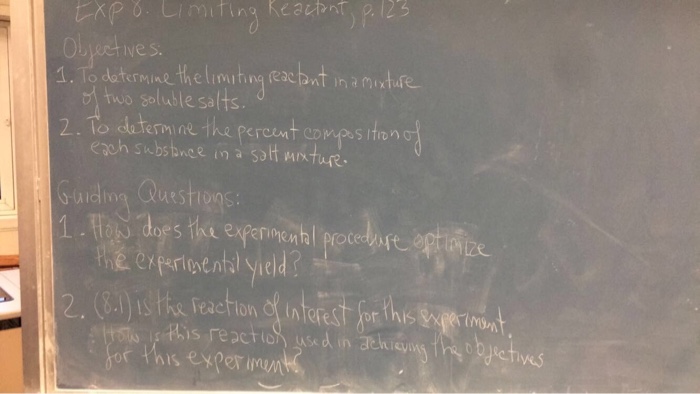 Exp 8. Limiting Reactant, p.123
Objectives:
1. To determine the limiting reactant in a mixture
of two soluble salts.
2. To determine the percent composition of
each substance in a salt mixture.
Guiding Questions:
1. How does the experimental procedure optimize
the experimental yield?
2. (8.1) is the reaction of interest for this experiment.
How is this reaction used in achieving the objectives
for this experiment?